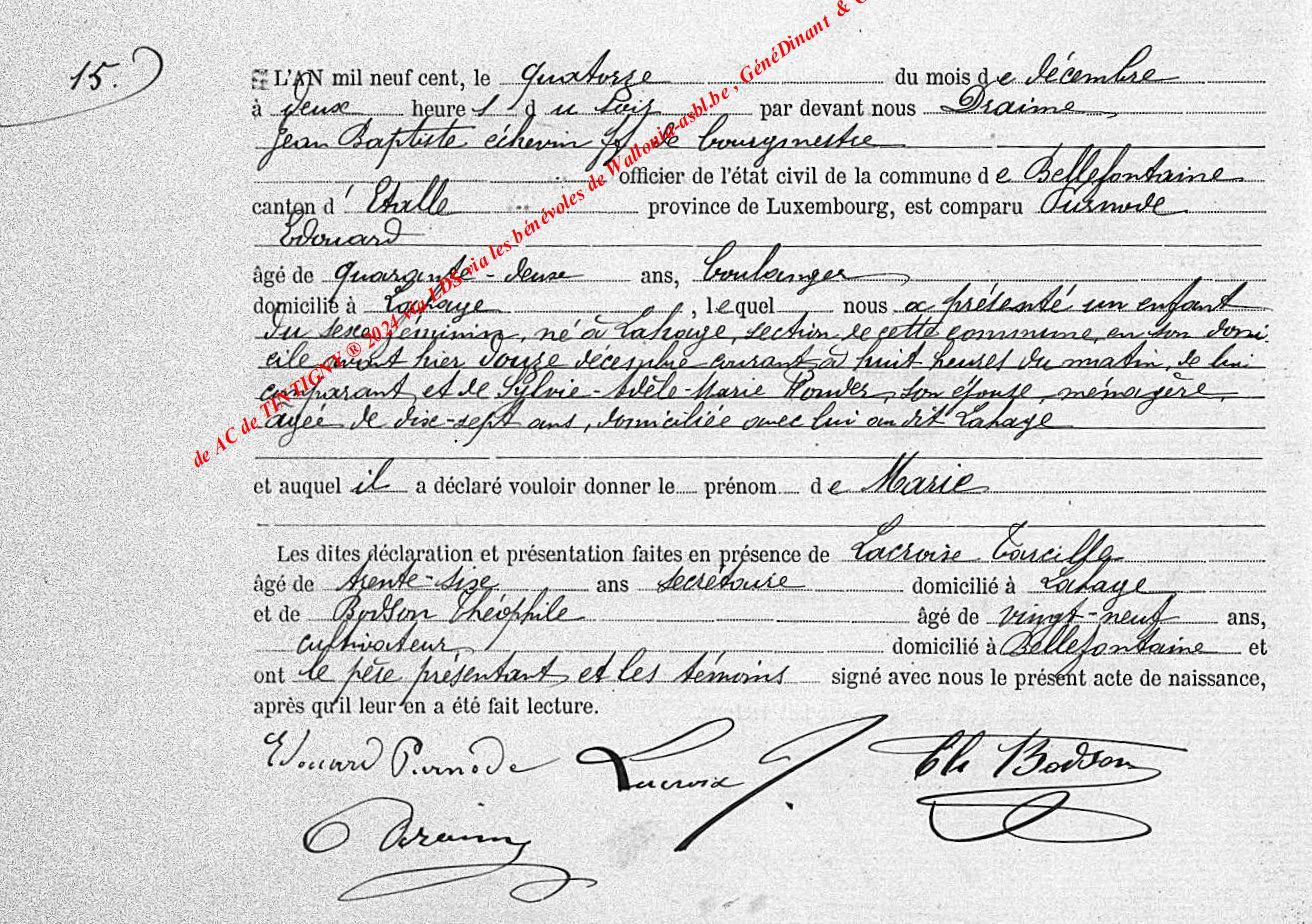 15.
L'AN mil neuf cent, le quatorze du mois de décembre
à deux heures du soir par devant nous Draime,
Jean Baptiste échevin ff de bourgmestre
officier de l'état civil de la commune de Bellefontaine
canton d'Etalle province de Luxembourg, est comparu Purnode
Edouard
âgé de quarante-deux ans, boulanger,
domicilié à Lahage, lequel nous a présenté un enfant
du sexe féminin, né à Lahage, section de cette commune, en son domi-
cile avant hier douze décembre courant à huit heures du matin, de lui
comparant et de Sylvie-Adèle-Marie son épouse, ménagère,
âgée de dix-sept ans, domiciliée avec lui au dit Lahage
et auquel il a déclaré vouloir donner le prénom de Marie
Les dites déclaration et présentation faites en présence de Lacroix
âgé de trente-six ans secrétaire domicilié à Lahage
et de Bodson Théophile âgé de vingt-neuf ans,
cultivateur, domicilié à Bellefontaine et
ont le père présentant et les témoins signé avec nous le présent acte de naissance,
après qu'il leur en a été fait lecture.
Edouard Purnode Lacroix T. Th Bodson
Draime
de AC de TINTIGNY ® 2024 via LDS via les bénévoles de Wallonia-asbl.be, GénéDinant &